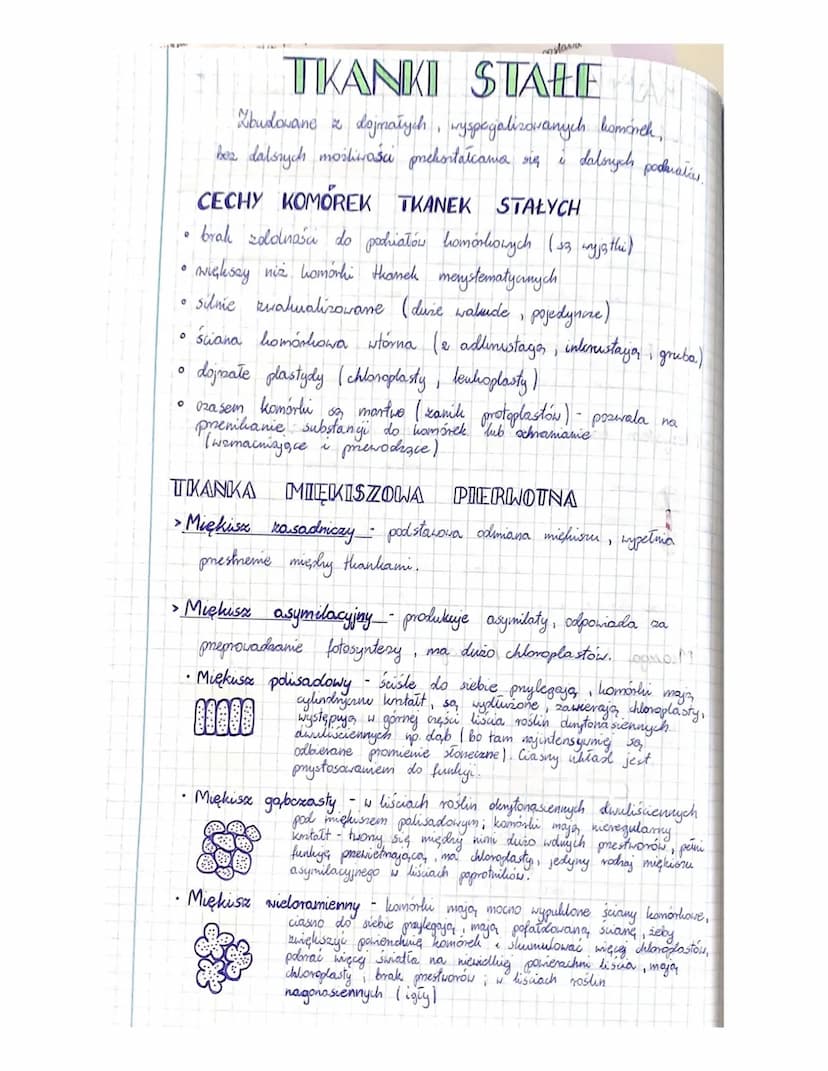 TKANKI STAŁE
Zbudowane z dojrzałych, wyspecjalizowanych komórek,
bez dalszych możliwości przekształcania się i dalszych podziałów.
CECHY KOMÓREK TKANEK STAŁYCH
• brak zdolności do podziałów komórkowych (są wyjątki)
• większy niż komórki tkanek merystematycznych
• silnie zwakualizowane (duże wakuole, pojedyncze)
• ściana komórkowa wtórna (z adkrustacją, inkrustacją i gruba)
• dojrzałe plastydy (chloroplasty, leukoplasty)
• czasem komórki są martwe (zanik protoplastów) - pozwala na
przenikanie substancji do komórek lub ochranianie
(wzmacniające i przewodzące)
TKANKA MIĘKISZOWA PIERWOTNA
> Miękisz zasadniczy - podstawowa odmiana miękiszu, wypełnia
przestrzenie między tkankami.
> Miękisz asymilacyjny - produkuje asymilaty, odpowiada za
przeprowadzanie fotosyntezy, ma dużo chloroplastów.
• Miękisz palisadowy - ściśle do siebie przylegają, komórki mają
cylindryczny kształt, są wydłużone, zawierają chloroplasty,
występują w górnej części liścia roślin okrytonasiennych
dwuliściennych np. dąb (bo tam najintensywniej są
odbierane promienie słoneczne). Ciasny układ jest
przystosowaniem do funkcji.
• Miękisz gąbczasty - w liściach roślin okrytonasiennych dwuliściennych
pod miękiszem palisadowym; komórki mają nieregularny
kształt - tworzy się między nimi dużo wolnych przestworów, pełni
funkcję przewietrzającą, ma chloroplasty, jedyny rodzaj miękiszu
asymilacyjnego w liściach paprotników.
• Miękisz wieloramienny - komórki mają mocno wypuklone ściany komórkowe,
ciasno do siebie przylegają, mają pofałdowaną ścianę, żeby
zwiększyć powierzchnię komórek i skumulować więcej chloroplastów,
pobrać więcej światła na niewielkiej powierzchni liścia, mają
chloroplasty, brak przestworów; w liściach roślin
nagonasiennych (igły)